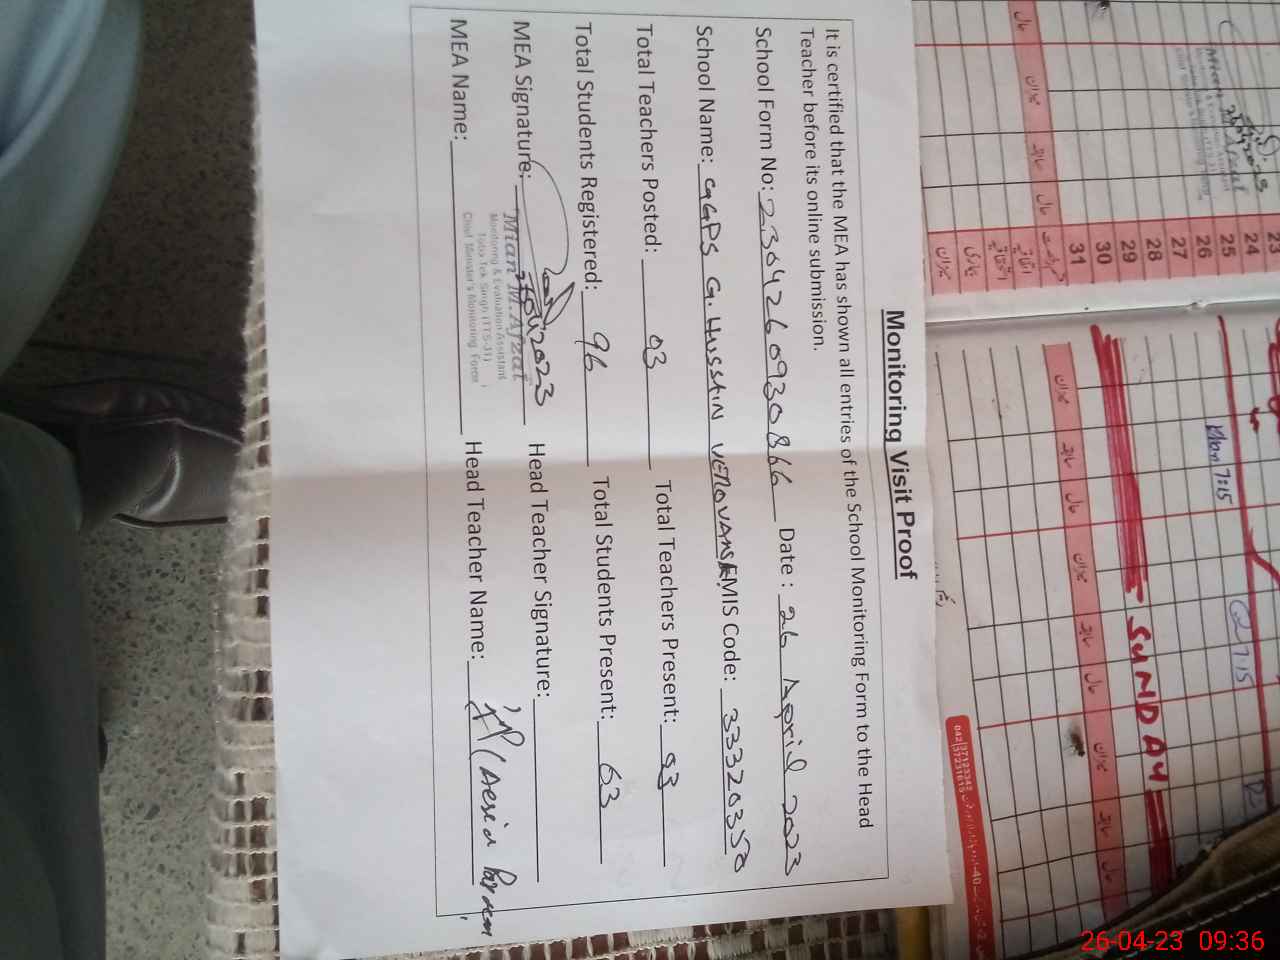 Monitoring Visit Proof
It is certified that the MEA has shown all entries of the School Monitoring Form to the Head
Teacher before its online submission.
School Form No: 2304260930866 Date : 26 April 2023
School Name: GGPS G. HUSSAIN EMIS Code: 33320350
Total Teachers Posted: 03 Total Teachers Present: 03
Total Students Registered: 96 Total Students Present: 63
MEA Signature: 26/04/2023 Head Teacher Signature:
Mian M. Afzal
Monitoring & Evaluation Assistant
Toba Tek Singh (TTS-31)
Chief Minister's Monitoring Force
MEA Name: Head Teacher Name:
23
24
25
26
27
28
29
30
31
میزان
سابقہ
حال
میزان
سابقہ
حال
میزان
سابقہ
حال
SUNDAY
Mon 7:15
7:15
042 37123342
37231615
26-04-23 09:36